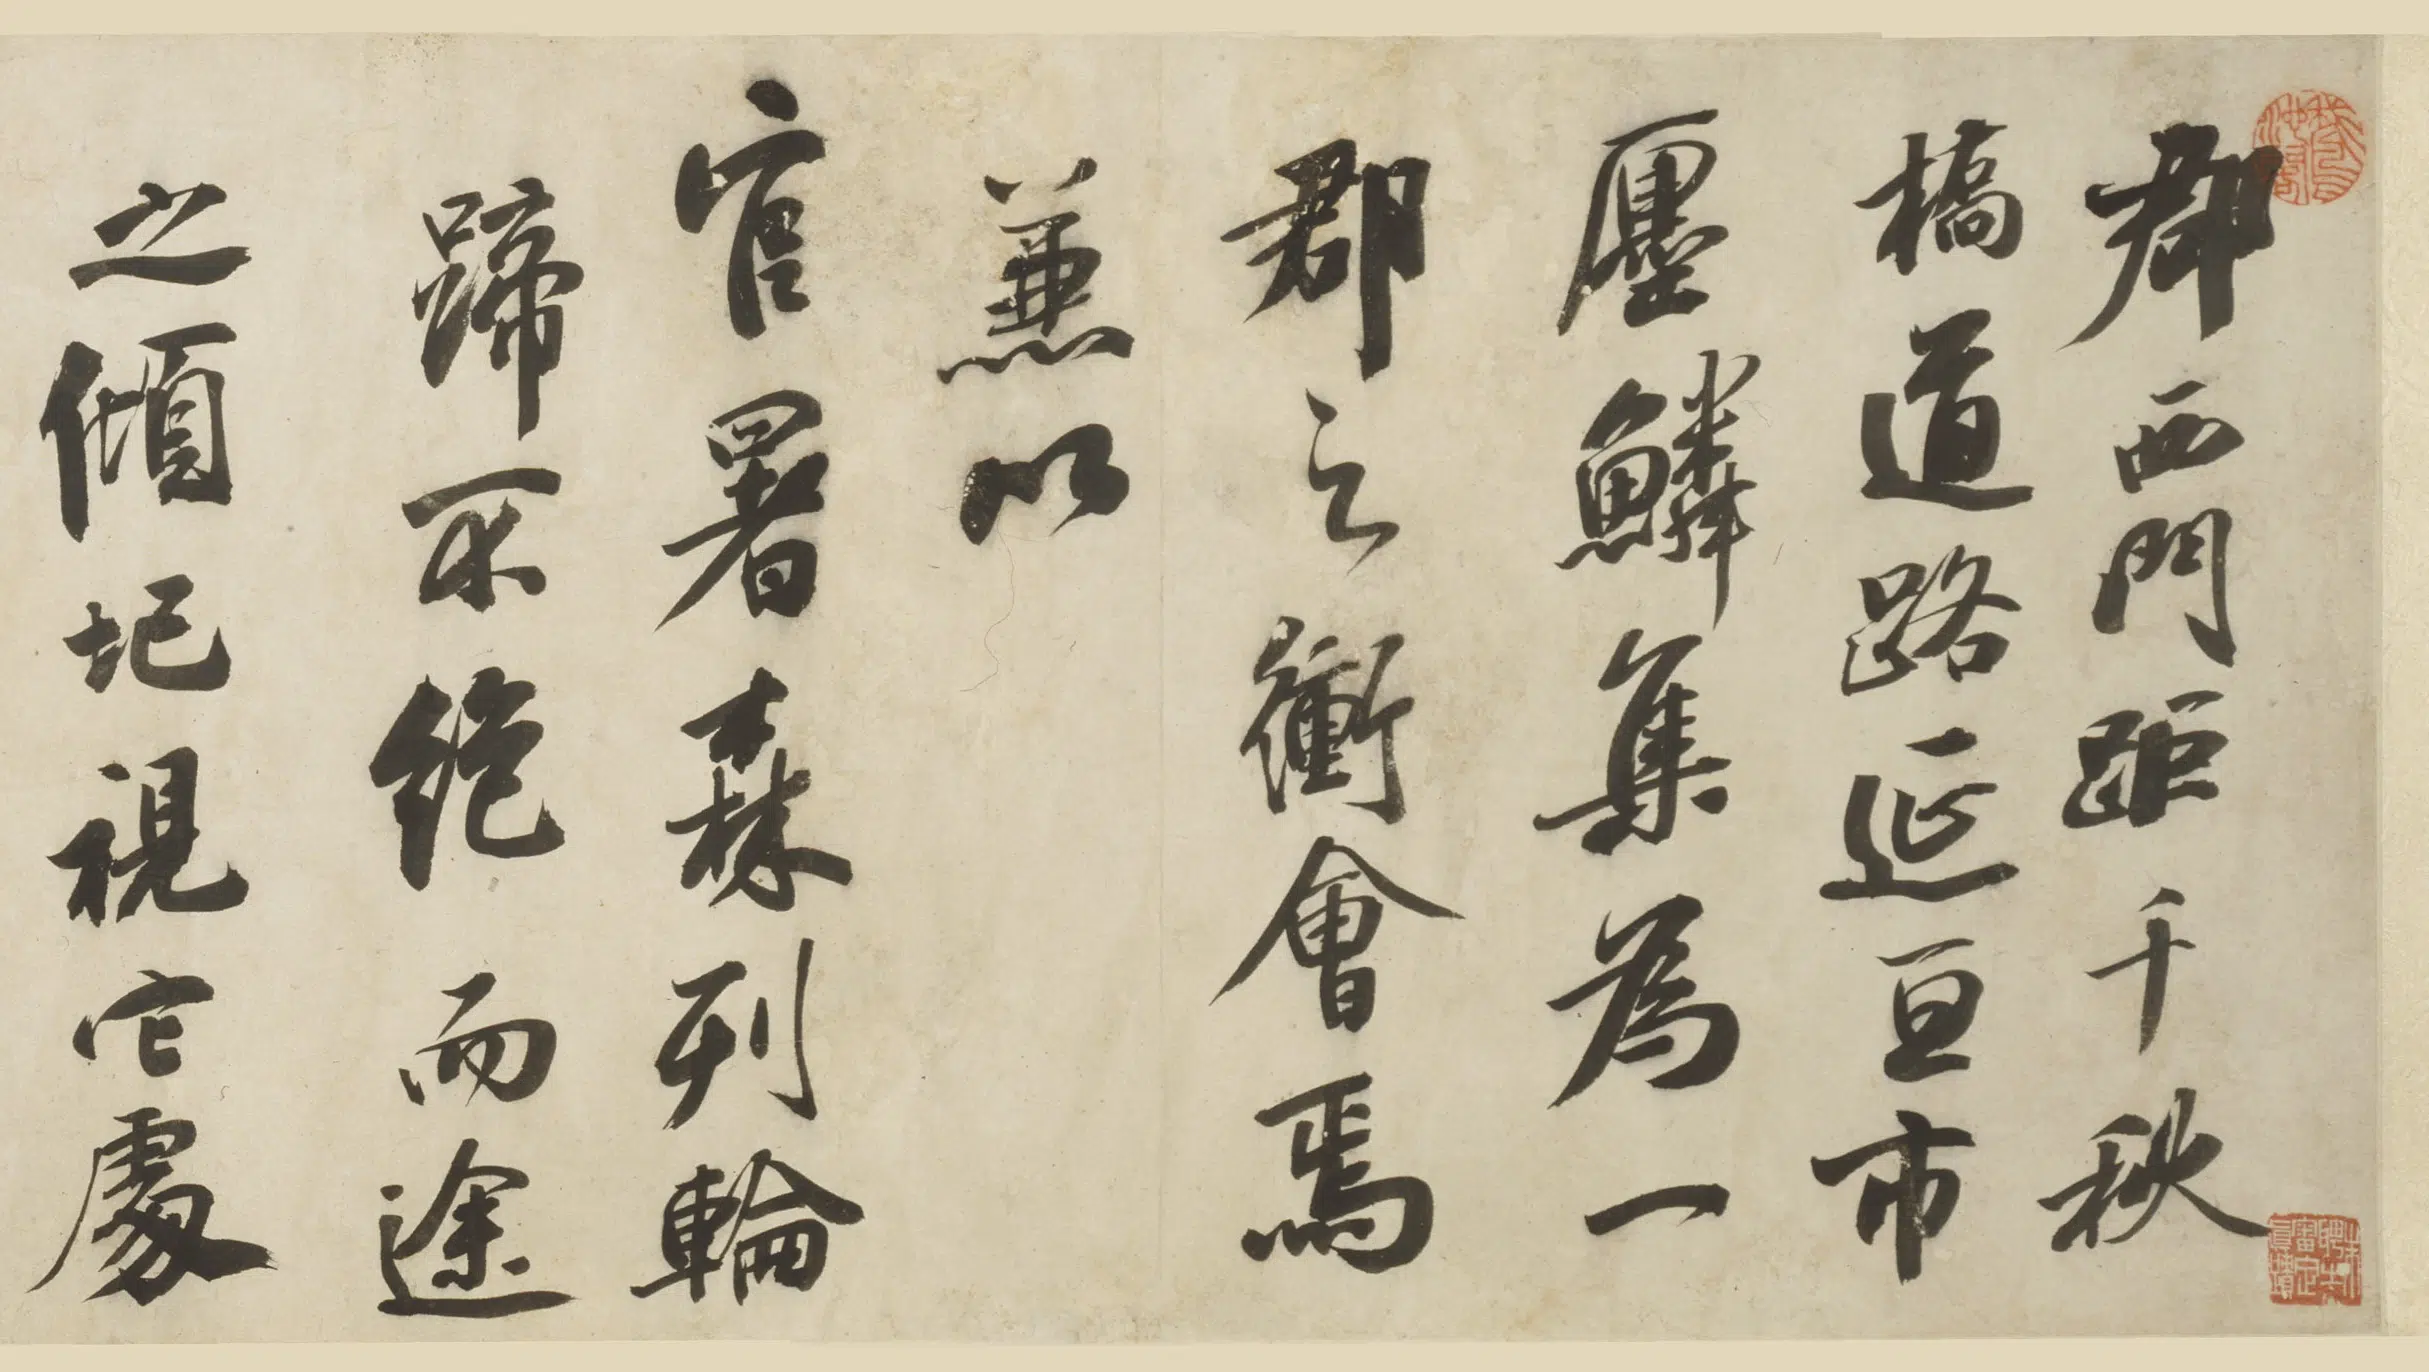 郡西門距千秋
橋道路延亘市
廛鱗集為一
郡之衝會焉
兼以
官署森列輪
蹄不絶而途
之傾圮視它處